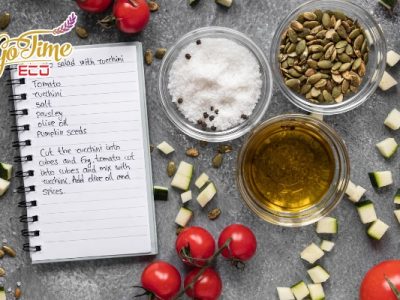 Go Time
ECO
salad with zucchini
Tomato
zucchini
salt
parsley
olive oil
Pumpkin seeds
Cut the zucchini into
cubes and fry, tomato cut
into cubes and mix with
zucchini. Add olive oil and
spices.